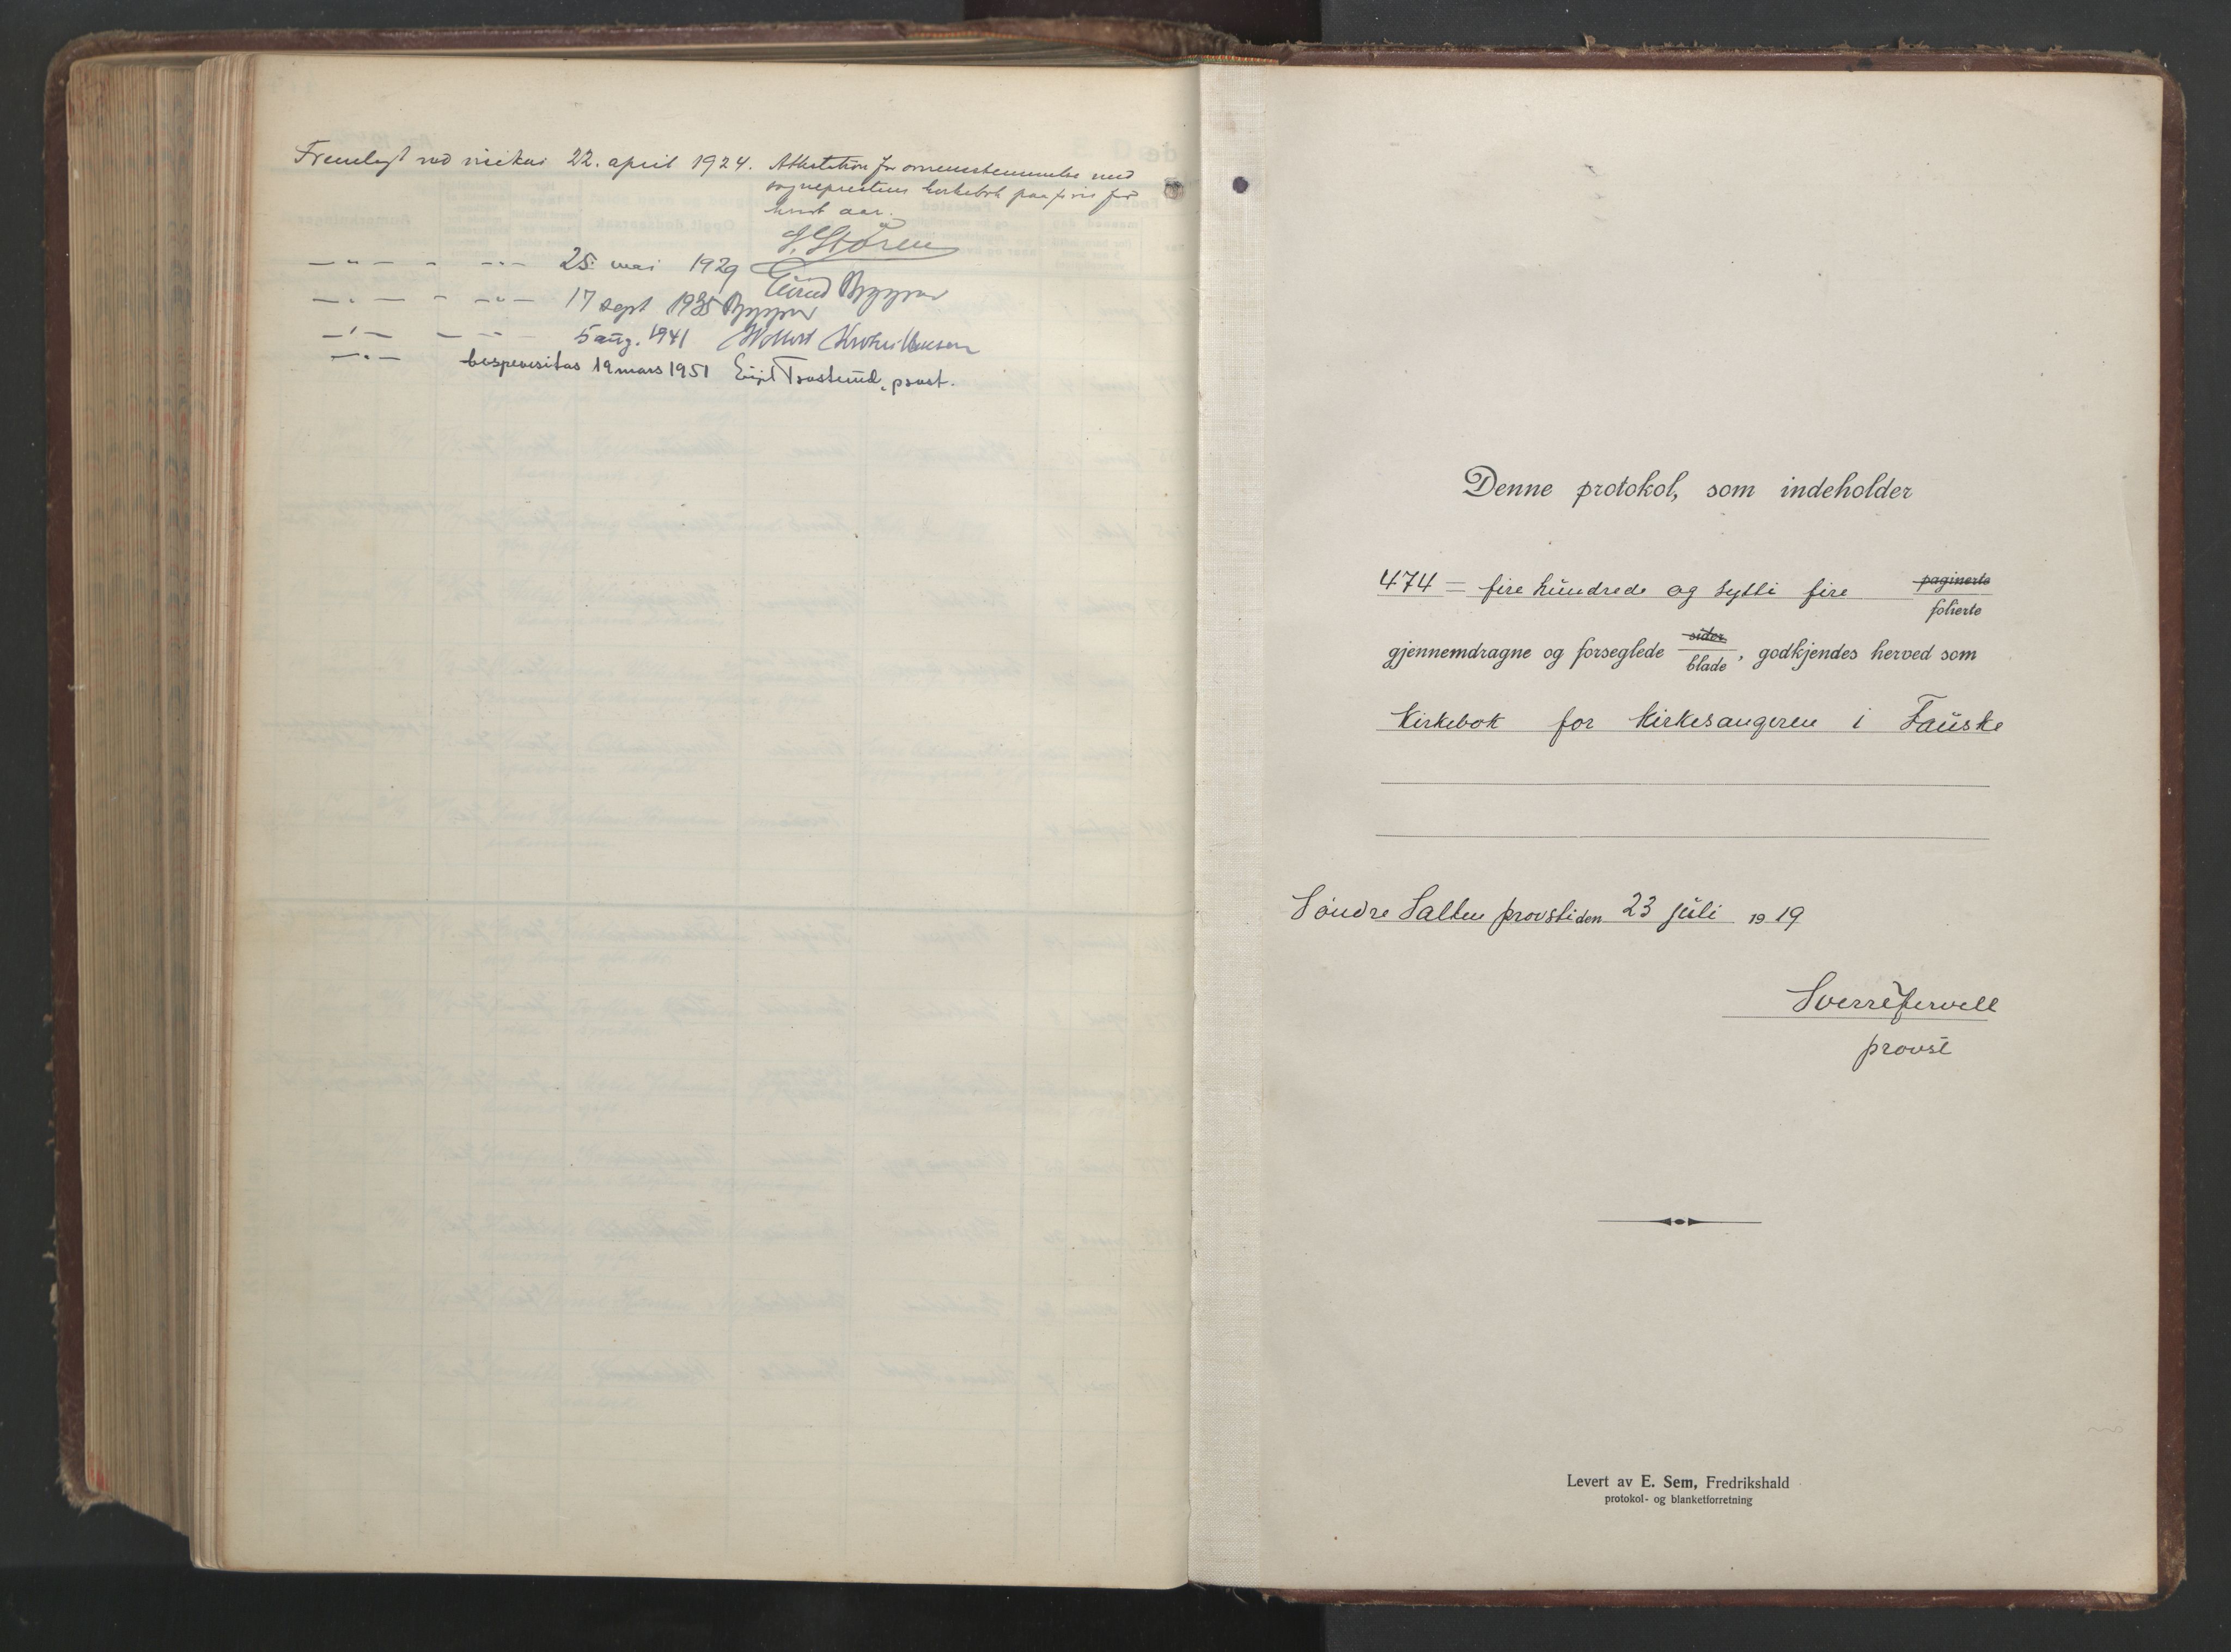 Fremlagt ved visitas 22. april 1924. Attestation for overensstemmelse med
sogneprestens kirkebok paaføres for
hvert aar.
S. Støren
— " — - — " — 25. mai 1929 Eivind Berggrav
— " — - — " — 17 sept 1935 Berggrav
— " — — " — 5 aug. 1941 Wollert Krohn Hansen
— " — bispevisitas 19 mars 1951 prost.
Denne protokol, som indeholder
474 = fire hundrede og sytti fire paginerte
folierte
gjennemdragne og forseglede sider
blade, godkjendes herved som
Kirkebok for kirkesangeren i Fauske
Søndre Salten provsti den 23 juli 1919
Sverre
provst
Levert av E. Sem, Fredrikshald
protokol- og blanketforretning